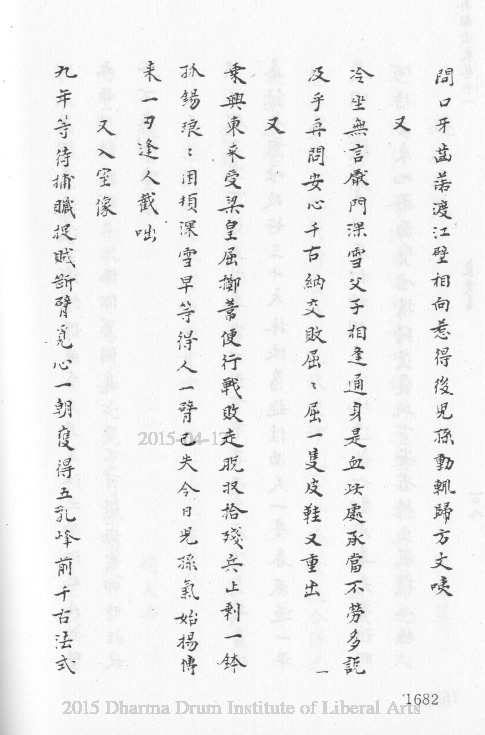 開口牙齒落渡江壁相向惹得後兒孫動輒歸方丈咦
又
冷坐無言儼門深雪父子相逢通身是血此處承當不勞多說
及乎再問安心千古納交敗屈〻屈一隻皮鞋又重出
又
乘興東來受梁皇屈擲蘆便行戰敗走脫收拾殘兵止剩一鉢
孤錫琅〻困頓深雪早等得人一臂已失今日兒孫氣始揚傳
來一刃逢人截咄
又入室像
九年等待捕贓捉賊斷臂覓心一朝獲得五乳峰前千古法式
1682
2015-04-17
2015 Dharma Drum Institute of Liberal Arts